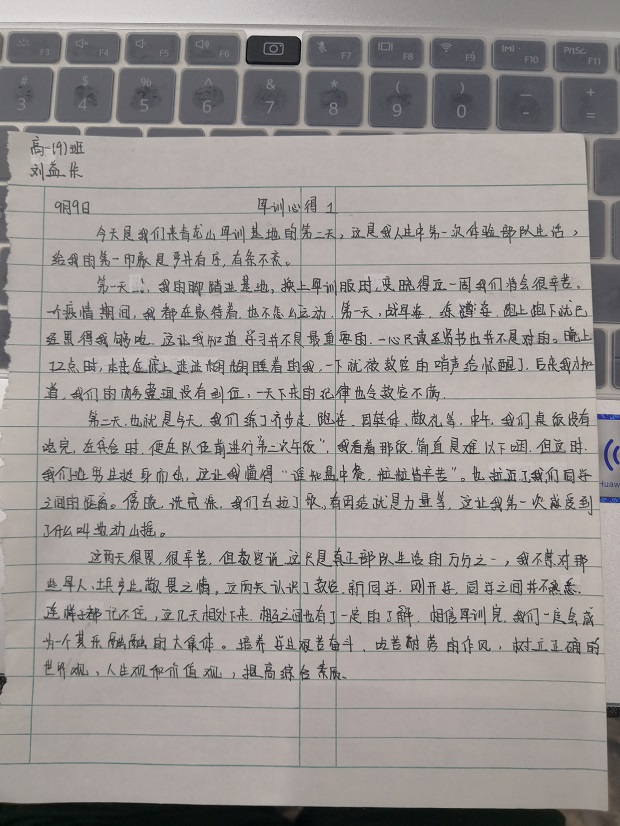 F3 F4 F5 F6 F7 F8 F9 F10 PrtSc F11
# 3 $ 4 % 5 ^ 6 & 7 * 8 ( 9 ) 0 — - + =
高一(9)班
刘益
9月9日 军训心得1
今天是我们来青龙山军训基地的第二天，这是我人生中第一次体验部队生活，
给我的第一印象是步井有序，有条不紊。
第一天，我的脚踏进基地，换上军训服时，更晓得这一周我们将会很辛苦。
个疫情期间，我都在散待着，也不怎么运动，第一天，战军姿，练蹲姿，跑上跑下就已
经累得我够呛，这让我知道学习并不是最重要的，一心只读圣贤书也并不是对的。晚上
12点时，本在床上迷迷糊糊睡着的我，一下就被教官的哨声给惊醒了，后来我才知
道，我们的内务整理没有到位，一天下来的纪律也令教官不满。
第二天，也就是今天，我们练了齐步走，跑步，四转体，敬礼等，中午，我们桌饭没有
吃完，在集合时，便在队伍前进行“第二次午饭”，我看着那饭，简直是难以下咽，但这时，
我们班男生挺身而出，这让我懂得“谁知盘中餐，粒粒皆辛苦”。也拉近了我们同学
之间的距离。傍晚，洗完澡，我们去拉了歌，有团结就是力量等，这让我第一次感受到
了什么叫地动山摇。
这两天很累，很辛苦，但教官说这只是真正部队生活的万分之一，我不禁对那
些军人产生敬畏之情，这两天认识了教官，新同学，刚开学，同学之间并不熟悉，
连牌子都记不住，这几天相处下来，相互之间也有了一定的了解，相信军训完，我们一定会成
为一个其乐融融的大集体。培养学生艰苦奋斗，吃苦耐劳的作风，树立正确的
世界观、人生观和价值观，提高综合素质。
Huaw